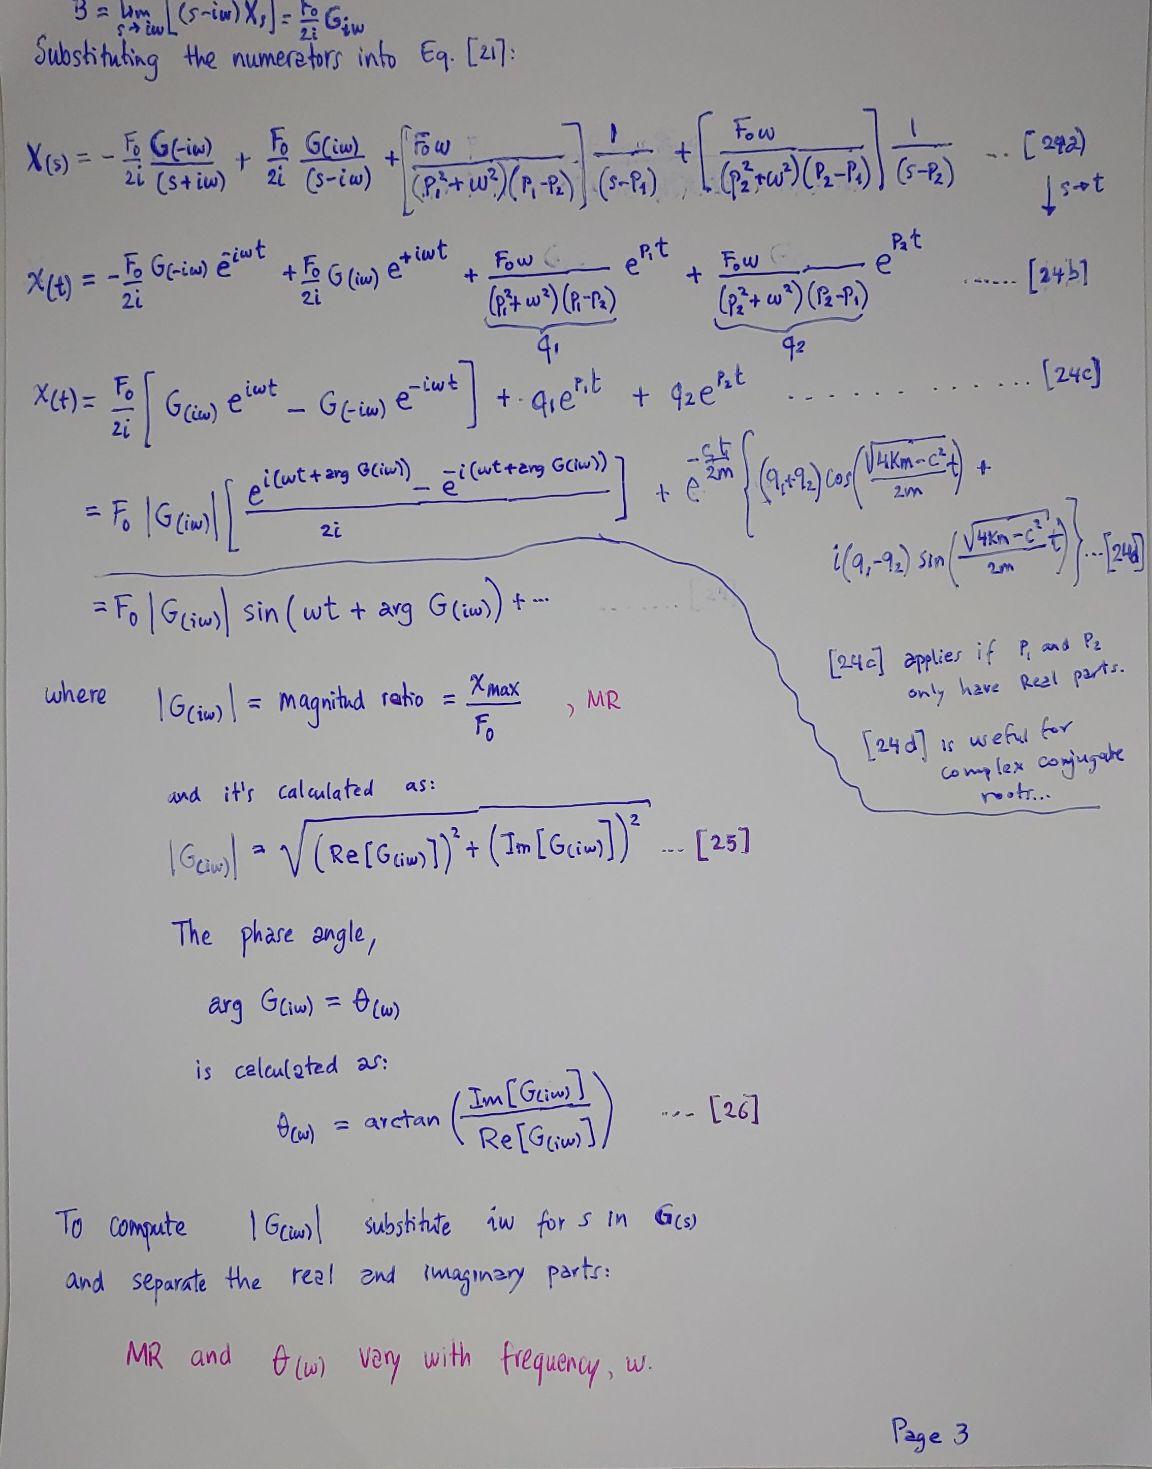 B = lim s→iω [(s-iω) Xs] = F₀/2i G_iω
Substituting the numerators into Eq. [21]:
X(s) = - F₀/2i G(-iω)/(s+iω) + F₀/2i G(iω)/(s-iω) + [F₀ω/((P₁²+ω²)(P₁-P₂))] 1/(s-P₁) + [F₀ω/((P₂²+ω²)(P₂-P₁))] 1/(s-P₂) ... [24a]
↓ s→t
X(t) = - F₀/2i G(-iω) e^-iωt + F₀/2i G(iω) e^+iωt + F₀ω/((P₁²+ω²)(P₁-P₂)) e^P₁t + F₀ω/((P₂²+ω²)(P₂-P₁)) e^P₂t ...... [24b]
q₁ q₂
X(t) = F₀/2i [G(iω) e^iωt - G(-iω) e^-iωt] + q₁e^P₁t + q₂e^P₂t ........... [24c]
= F₀ |G(iω)| [(e^i(ωt+arg G(iω)) - e^-i(ωt+arg G(iω)))/2i] + e^-ct/2m {(q₁+q₂) cos(√(4Km-c²)/2m t) +
i(q₁-q₂) sin(√(4Km-c²)/2m t)} ...[24d]
= F₀ |G(iω)| sin(ωt + arg G(iω)) + ...
[24c] applies if P₁ and P₂
only have Real parts.
[24d] is useful for
complex conjugate
roots...
where |G(iω)| = magnitud ratio = Xmax/F₀ , MR
and it's calculated as:
|G(iω)| = √((Re[G(iω)])² + (Im[G(iω)])²) .... [25]
The phase angle,
arg G(iω) = θ(ω)
is calculated as:
θ(ω) = arctan (Im[G(iω)]/Re[G(iω)]) .... [26]
To compute |G(iω)| substitute iω for s in G(s)
and separate the real and imaginary parts:
MR and θ(ω) vary with frequency, ω.
Page 3